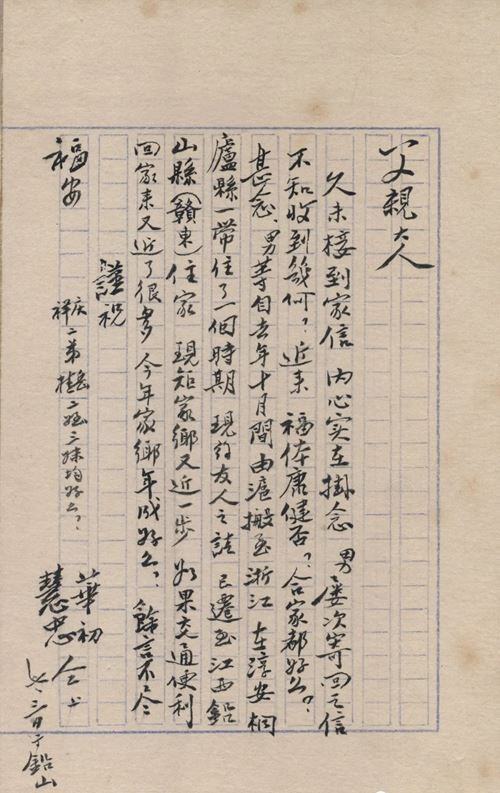 父親大人
久未接到家信 內心实在掛念 男屡次寄回之信
不知收到幾何？近来 福体康健否？合家都好么？
甚念、男等自去年十月間由滬搬至浙江 在淳安桐
廬縣一帶住了一個時期 現約友人之請 已遷至江西鉛
山縣（贛東）住家 現距家鄉又近一步 如果交通便利
回家来又近了很多 今年家鄉年成好么？ 餘言不尽
謹祝
福安
慶二弟 二姪三妹均好么？
祥
華初
慧忠 仝上
七、三日于鉛山